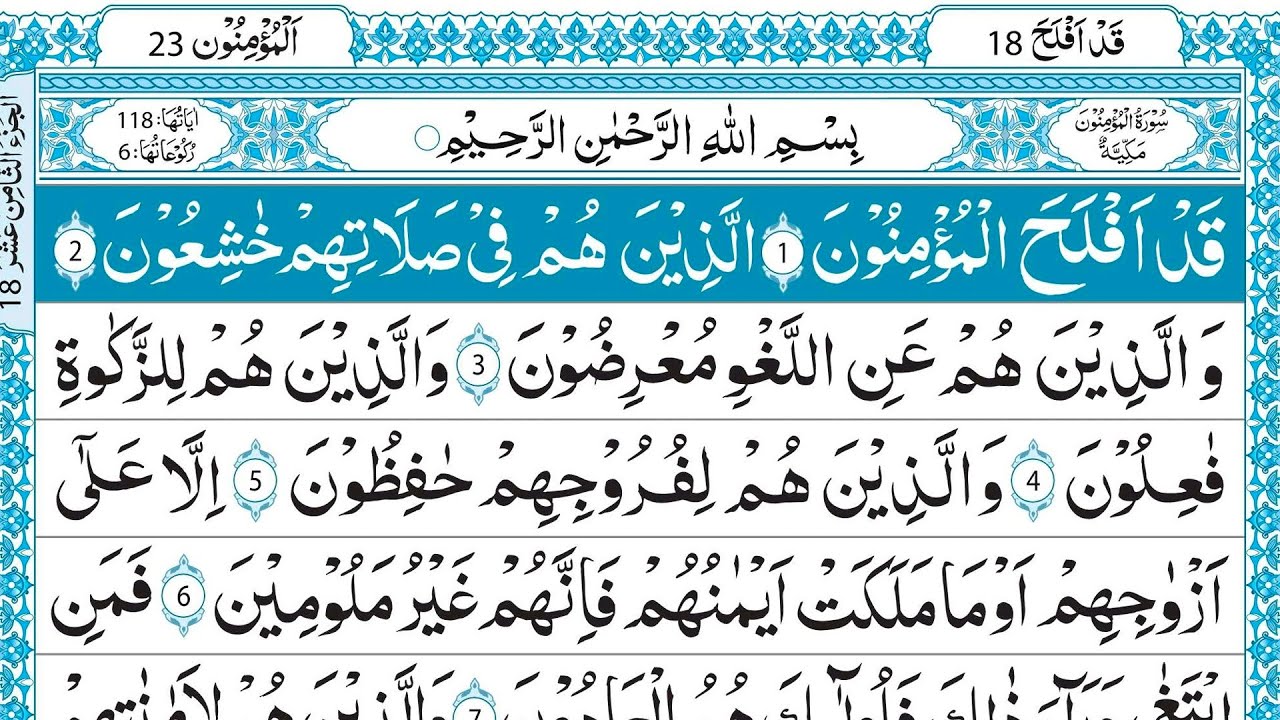 قَدْ اَفْلَحَ 18
اَلْمُؤْمِنُوْن 23
سُوْرَةُ الْمُؤْمِنُوْنَ
مَكِّيَّةٌ
بِسْمِ اللّٰهِ الرَّحْمٰنِ الرَّحِيْمِ
اٰيَاتُهَا: 118
رُكُوْعَاتُهَا: 6
الجزء الثامن عشر 18
قَدْ اَفْلَحَ الْمُؤْمِنُوْنَ 1 الَّذِيْنَ هُمْ فِيْ صَلَاتِهِمْ خٰشِعُوْنَ 2
وَالَّذِيْنَ هُمْ عَنِ اللَّغْوِ مُعْرِضُوْنَ 3 وَالَّذِيْنَ هُمْ لِلزَّكٰوةِ
فٰعِلُوْنَ 4 وَالَّذِيْنَ هُمْ لِفُرُوْجِهِمْ حٰفِظُوْنَ 5 اِلَّا عَلٰٓى
اَزْوٰجِهِمْ اَوْ مَا مَلَكَتْ اَيْمٰنُهُمْ فَاِنَّهُمْ غَيْرُ مَلُوْمِيْنَ 6 فَمَنِ
ابْتَغٰى وَرَآءَ ذٰلِكَ فَاُولٰٓئِكَ هُمُ الْعَادُوْنَ 7 وَالَّذِيْنَ هُمْ لِاَمٰنٰتِهِمْ